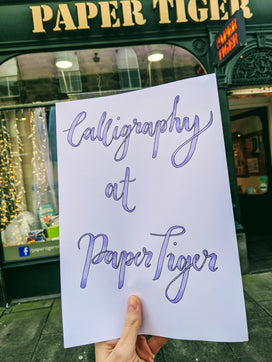 PAPER TIGER
PAPER TIGER
Calligraphy
at
Paper Tiger